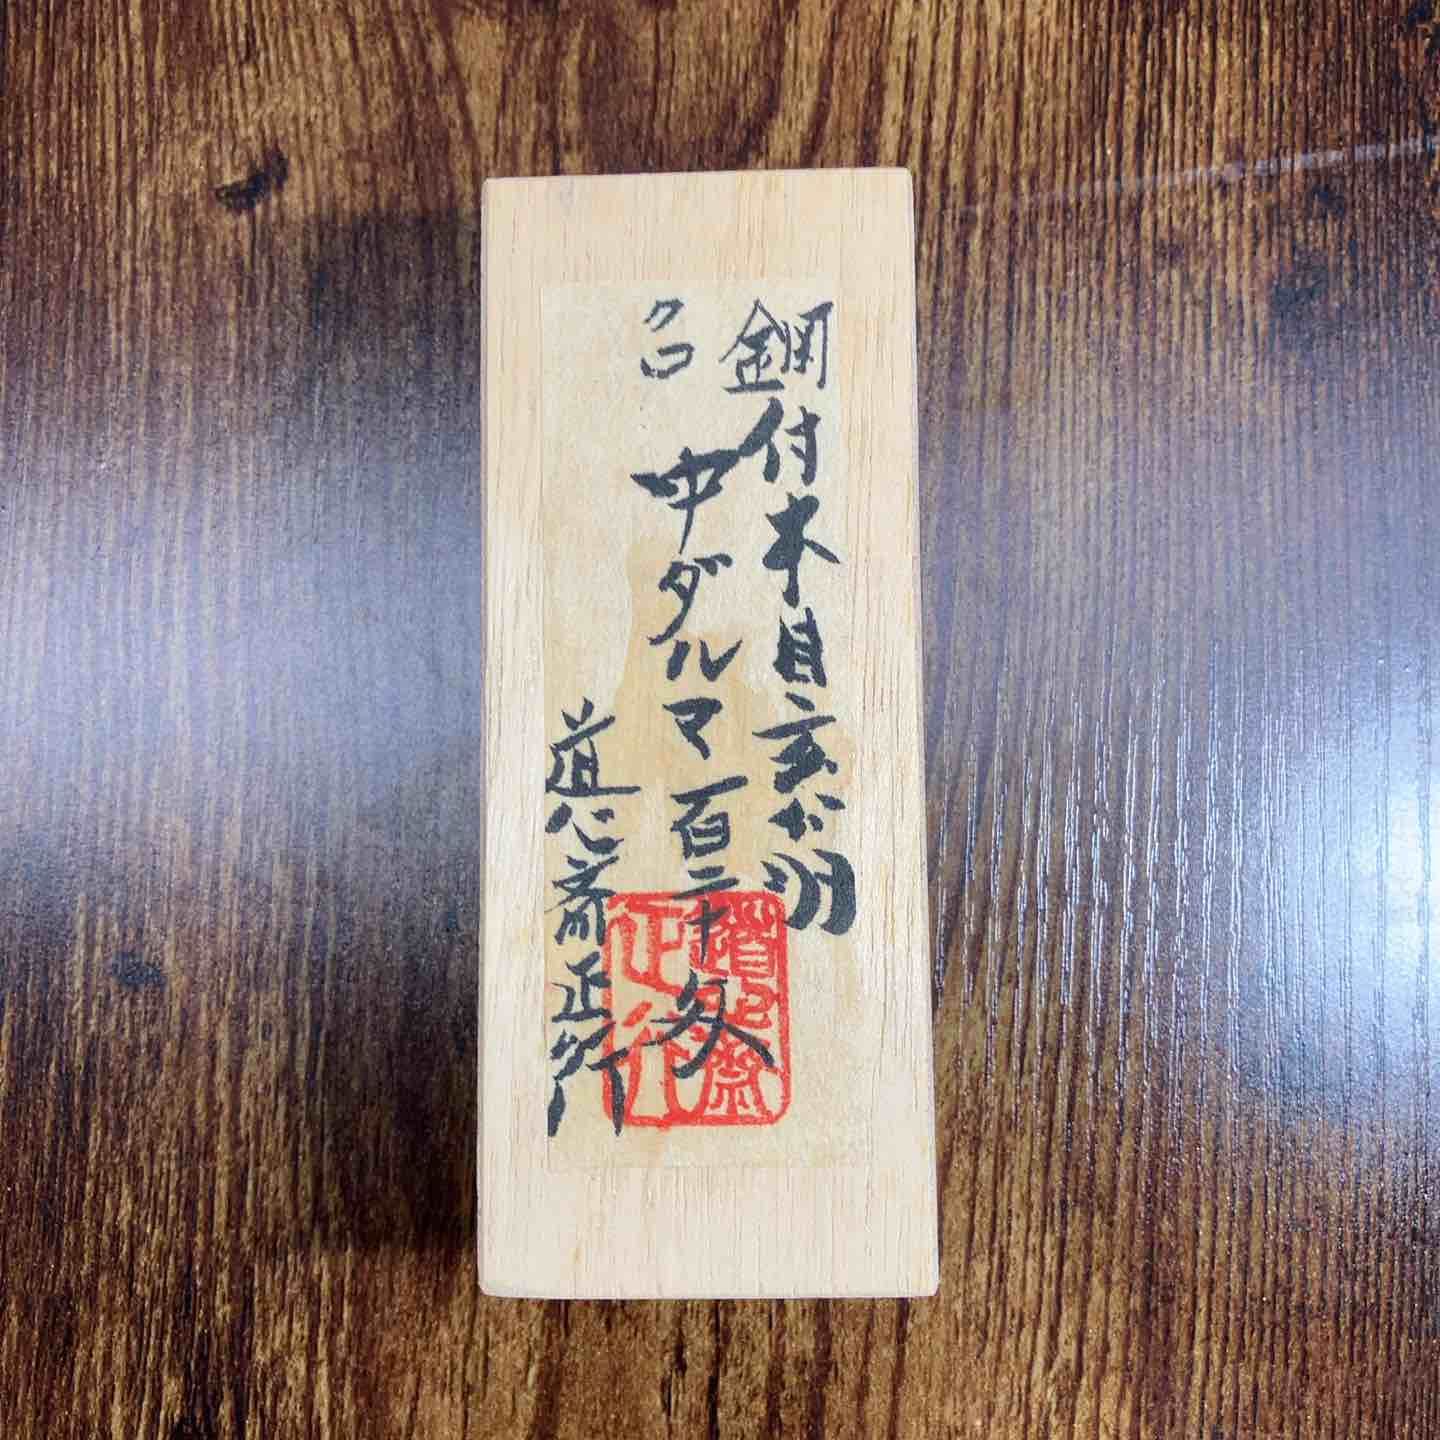 鋼付木目玄如羽
クロ 中ダルマ百二十匁
道心斎正行
道心斎正行